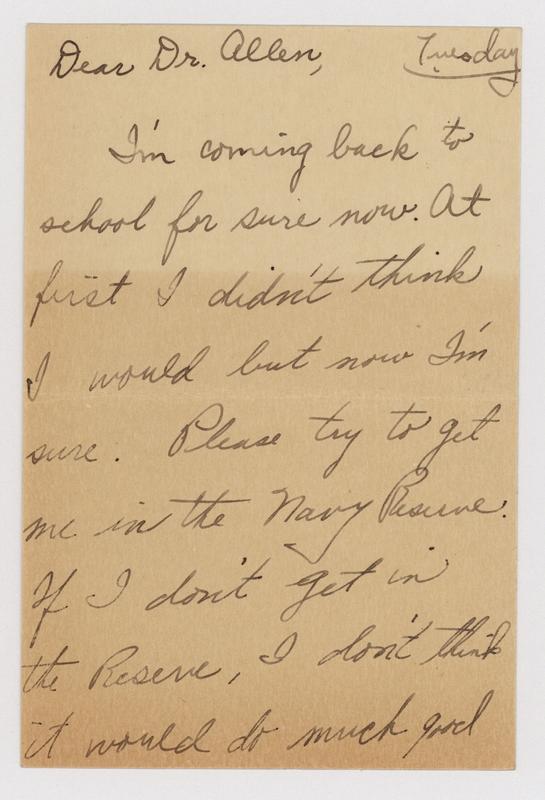 Dear Dr. Allen, Tuesday
I'm coming back to
school for sure now. At
first I didn't think
I would but now I'm
sure. Please try to get
me in the Navy Reserve.
If I don't get in
the Reserve, I don't think
it would do much good